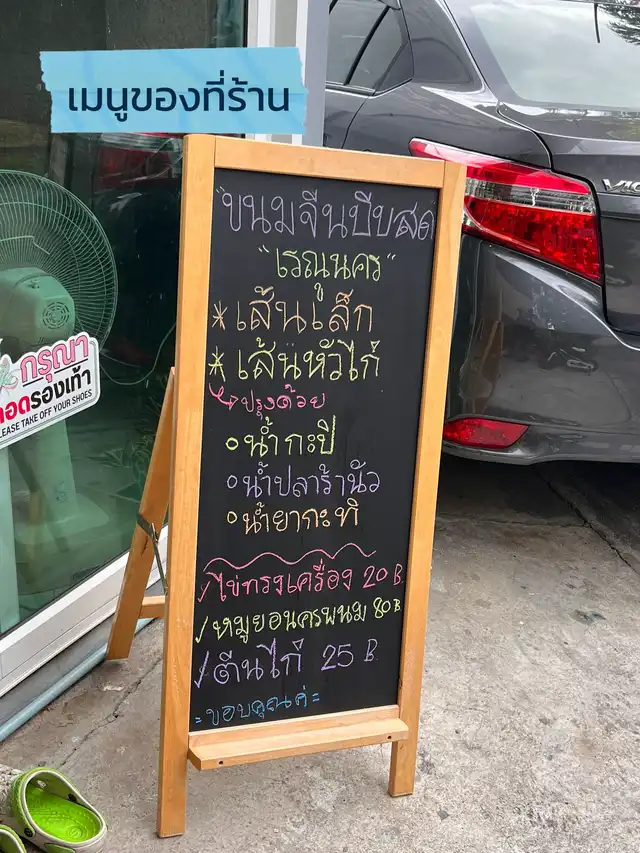 เมนูของที่ร้าน
"ขนมจีนบีบสด
"เรณูนคร"
* เส้นเล็ก
* เส้นหัวไก่
ปรุงด้วย
น้ำกะปิ
น้ำปลาร้านัว
น้ำยากะทิ
/ ไข่ทรงเครื่อง 20 B.
/ หมูยอนครพนม 80 B
/ ตีนไก่ 25 B.
= ขอบคุณค่ะ =
กรุณา
ถอดรองเท้า
PLEASE TAKE OFF YOUR SHOES